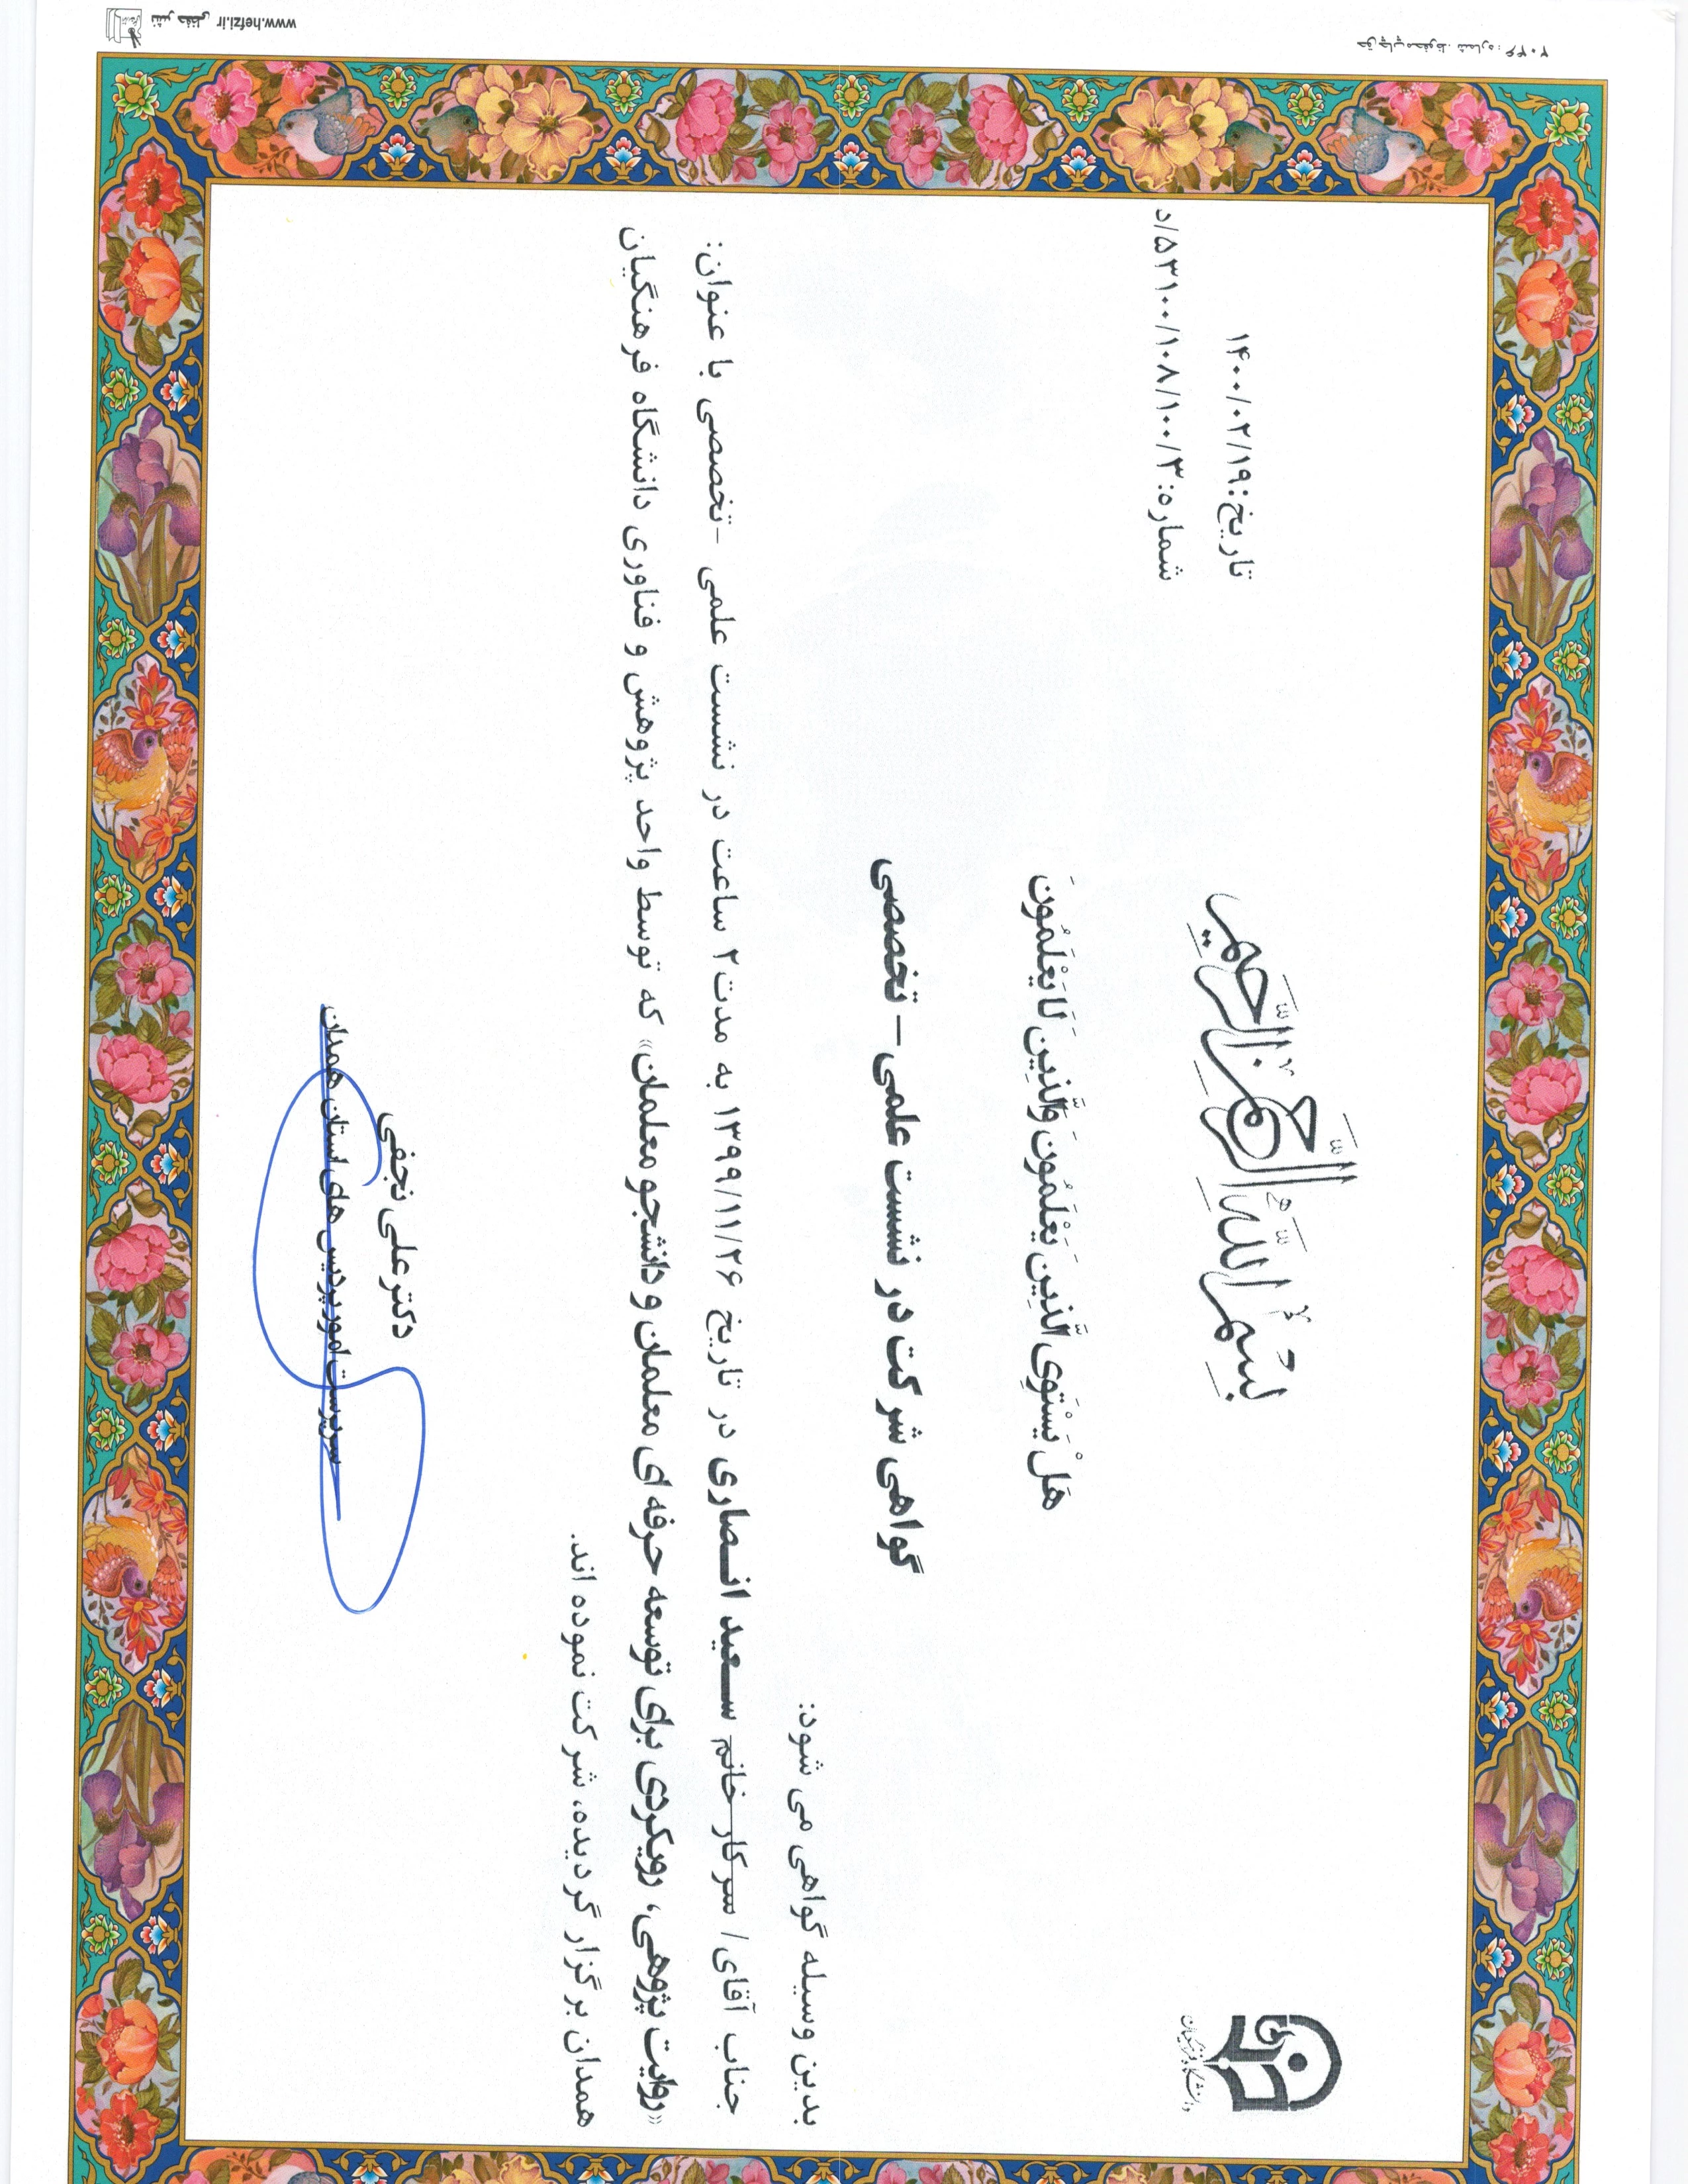 بِسْمِ اللَّهِ الرَّحْمَٰنِ الرَّحِيمِ
دانشگاه فرهنگیان
تاریخ: ۱۴۰۰/۰۲/۱۹
شماره: ۵۳۱۰۰/۱۰۸/۱۰۰/۳/د
هَلْ يَسْتَوِي الَّذِينَ يَعْلَمُونَ وَالَّذِينَ لَا يَعْلَمُونَ
گواهی شرکت در نشست علمی – تخصصی
بدین وسیله گواهی می شود:
جناب آقای/ سرکار خانم سعید انصاری در تاریخ ۱۳۹۹/۱۱/۲۶ به مدت ۲ ساعت در نشست علمی -تخصصی با عنوان:
«روایت پژوهی، رویکردی برای توسعه حرفه ای معلمان و دانشجو معلمان» که توسط واحد پژوهش و فناوری دانشگاه فرهنگیان
همدان برگزار گردیده، شرکت نموده اند.
دکتر علی نجفی
سرپرست امور پردیس های استان همدان
www.hefzi.ir نشر حفظی
حق چاپ محفوظ. شماره: ۲۰۴۶